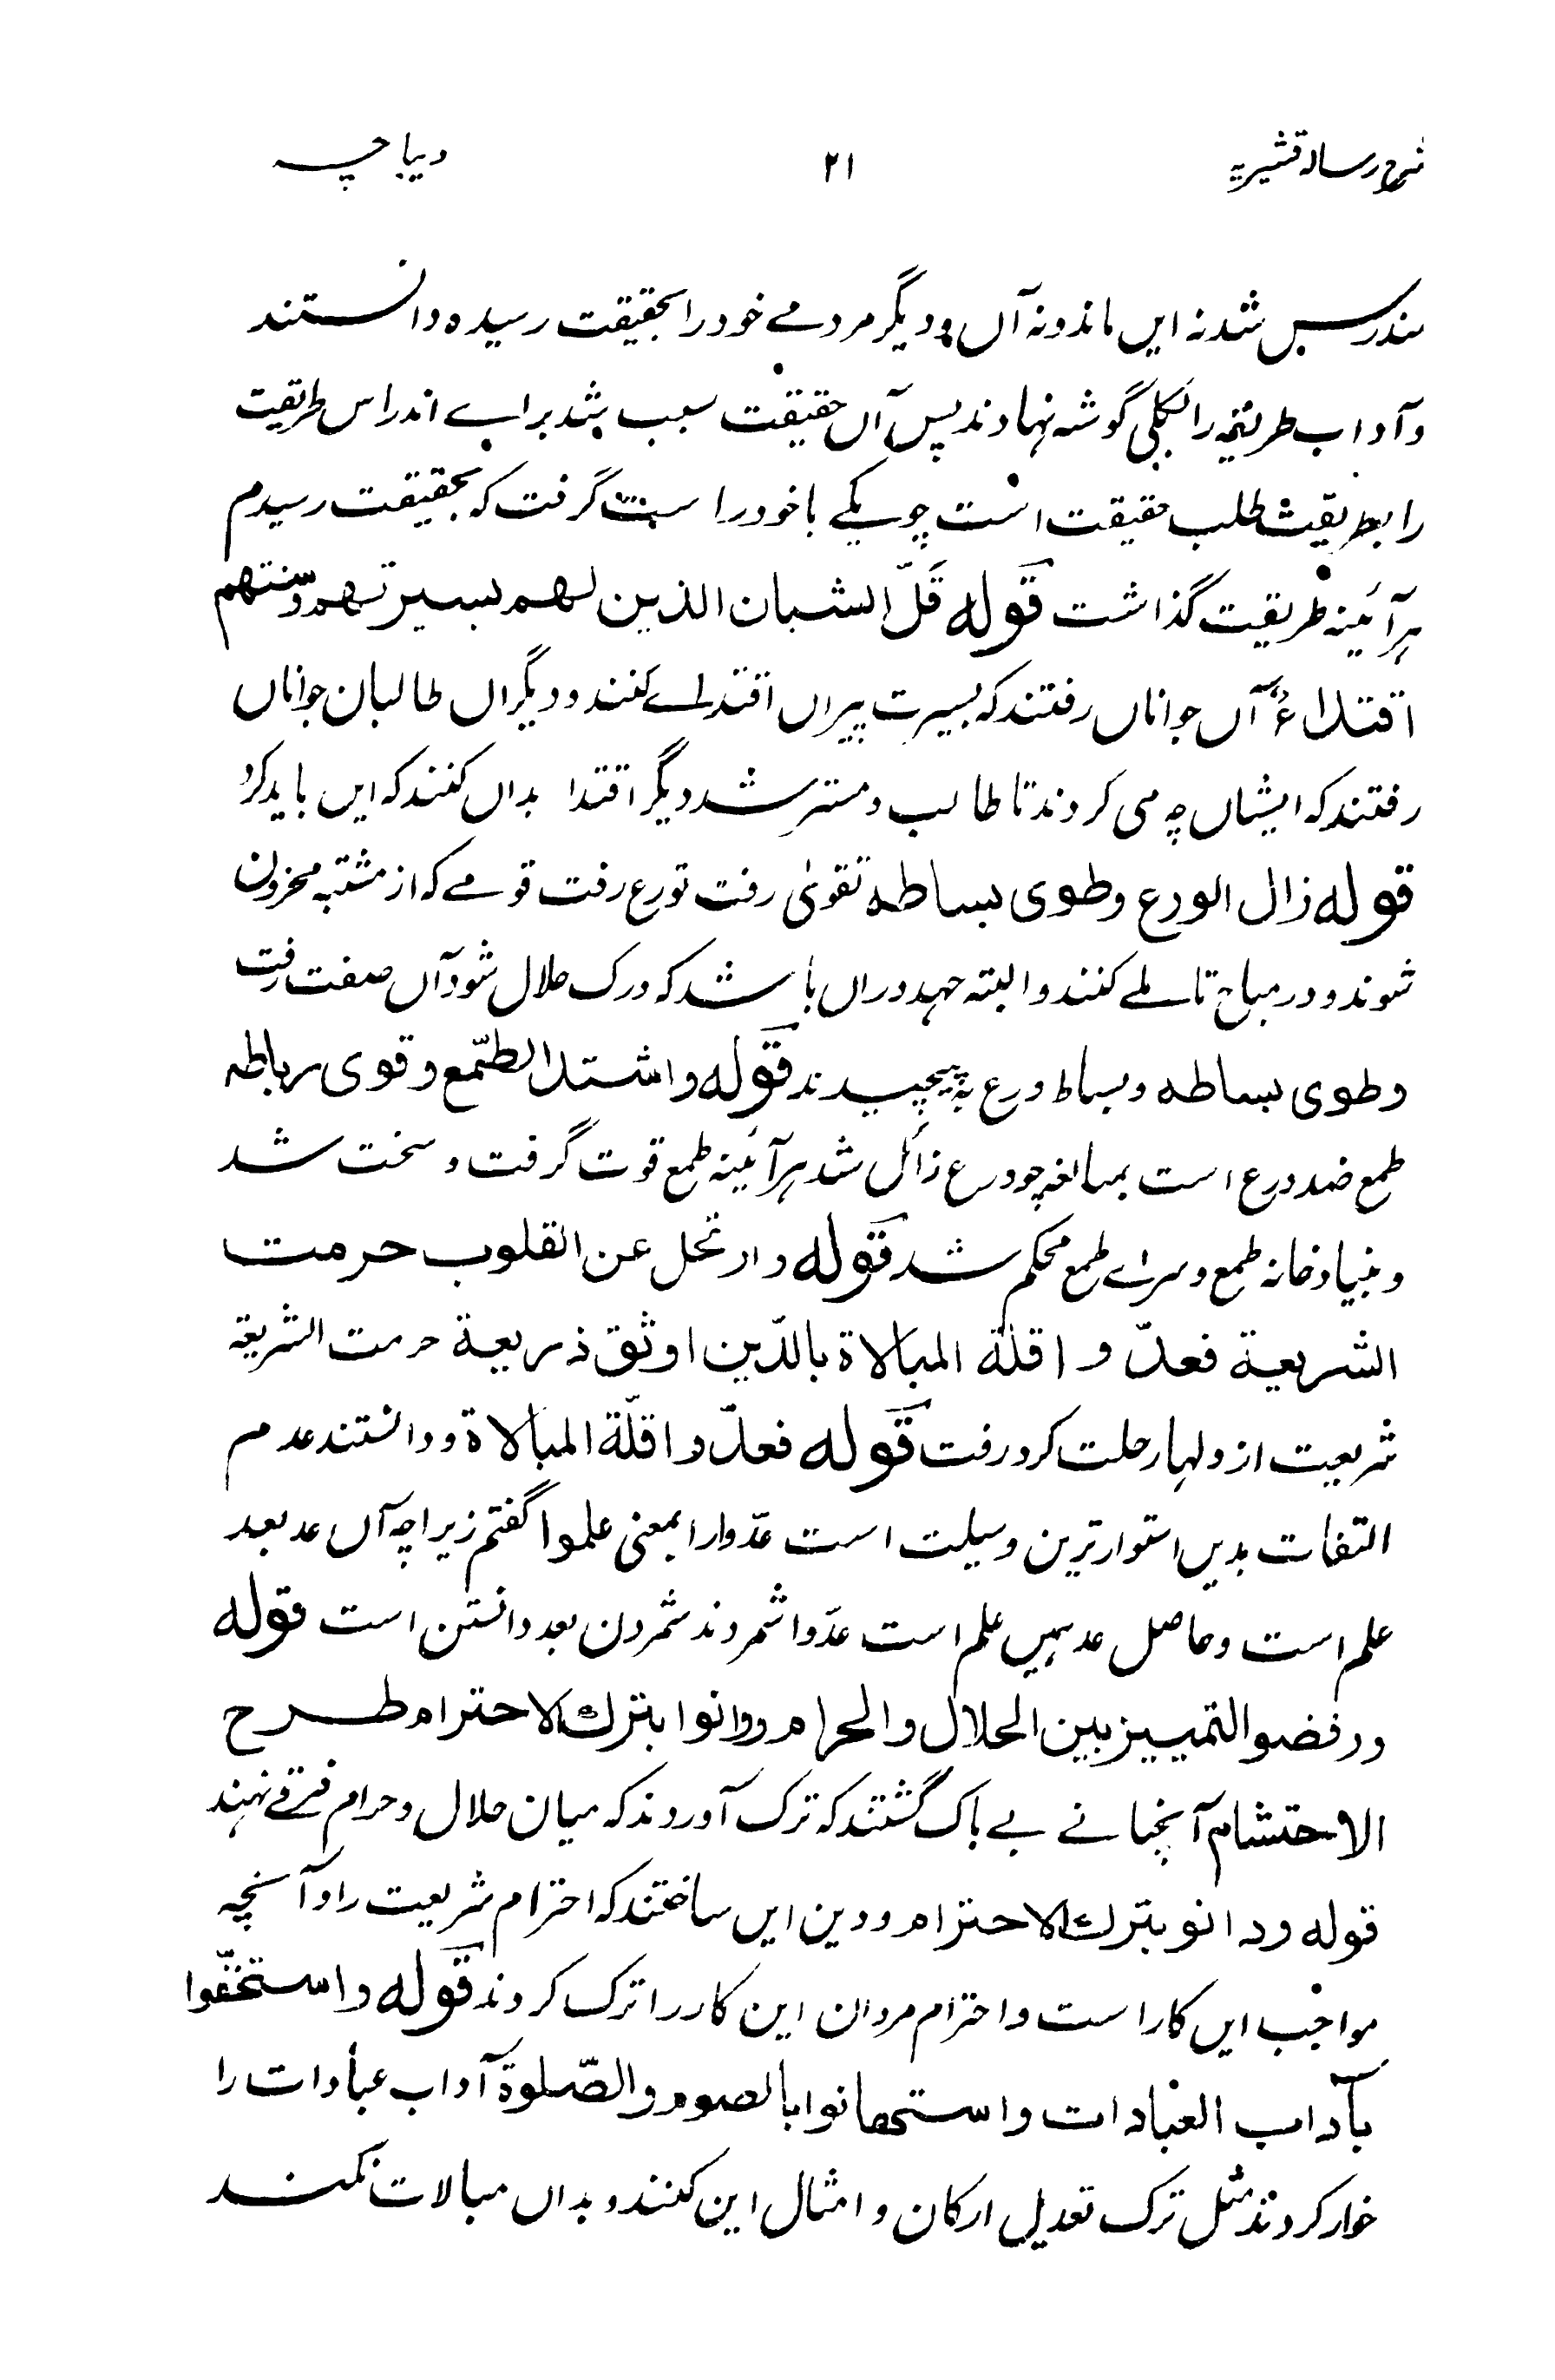 شرح رسالہ قشیریہ ۲۱ دیباچہ
مندرس شدنہ ایں ماندونہ آں و دیگر مردمے خود را بحقیقت رسیدہ دانستند
و آداب طریقہ را بکلی گوشہ نہادند پس آں حقیقت سبب شد براے اندراس طریقت
را بطریقت طلب حقیقت است چو یکے با خود راست گرفت کہ بحقیقت رسیدم
ہر آئینہ طریقت گذاشت قولہ قلّ الشبان الذین لھم بسیرتھم وسنتھم
اقتداءٌ آں جواناں رفتند کہ بسیرت پیراں اقتداے کنند و دیگراں طالبان جواناں
رفتند کہ ایشاں چہ می کردند تا طالب و مسترشد دیگر اقتدا بداں کنند کہ ایں باید کرد
قولہ زال الورع وطوی بساطہ تقویٰ رفت تورع رفت قومے کہ از مشتبہ محزون
شوند و در مباح تاملے کنند و البتہ جہد دراں باشد کہ درک حلال شود آں صفت رفت
وطوی بساطہ و بساط ورع بہ پیچیدند قولہ واشتد الطّمع وقوی رباطہ
طمع ضد ورع است بمبالغہ چو ورع زائل شد ہر آئینہ طمع قوت گرفت و سخت شد
و بنیاد خانہ طمع و سراے طمع محکم شد قولہ وارتحل عن القلوب حرمت
الشریعۃ فعدّوا قلۃ المبالاۃ بالدّین اوثق ذریعۃ حرمت الشریعۃ
شریعت از دلہا رحلت کرد رفت قولہ فعدّوا قلّۃ المبالاۃ و دانستند عدم
التفات بدیں استوارترین وسیلت است عدّوا را بمعنی علموا گفتم زیراچہ آں عد بعد
علم است و حاصل عد ہمیں علم است عدّوا شمردند شمردن بعد دانستن است قولہ
ورفضوا التمییز بین الحلال والحرام ودانوا بترک الاحترام طرح
الاحتشام آنچنانے بے باک گشتند کہ ترک آوردند کہ میان حلال و حرام فرقے نہند
قولہ ودانو بترک الاحترام و دین ایں ساختند کہ احترام شریعت را و آنچہ
مواجب ایں کار است و احترام مردان این کار را ترک کردند قولہ واستخفّوا
بآداب العبادات واستھانوا بالصوم والصّلوۃ آداب عبادات را
خوار کردند مثل ترک تعدیل ارکان و امثال این کنند و بداں مبالات نکنند